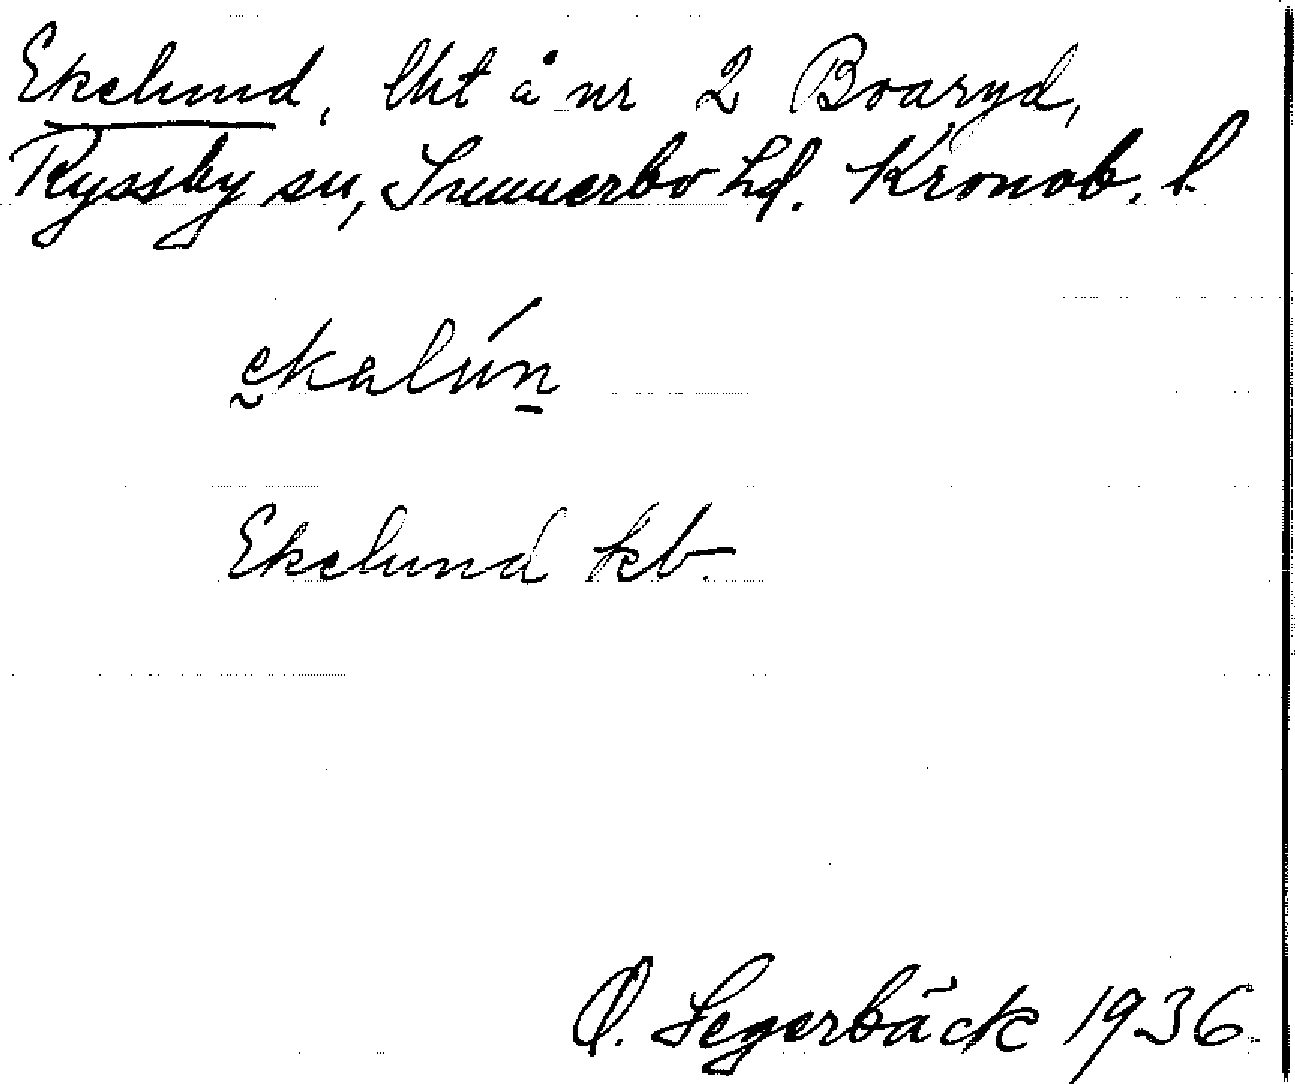 Ekelund, lht å nr 2 Boaryd,
Ryssby sn, Sunnerbo hd. Kronob. l.
ekalún
Ekelund kb.
O. Segerbäck 1936